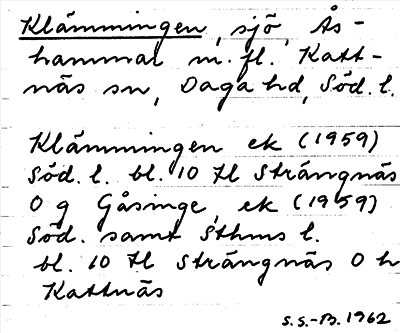 Klämmingen, sjö, Ås-
hammar m.fl. Katt-
näs sn, Daga hd, Söd. l.
Klämmingen ek (1959)
Söd. l. bl. 10 Hl Strängnäs
0 g Gåsinge, ek (1959)
Söd. samt Sthms l.
bl. 10 Hl Strängnäs 0 h
Kattnäs
S.S.-B. 1962